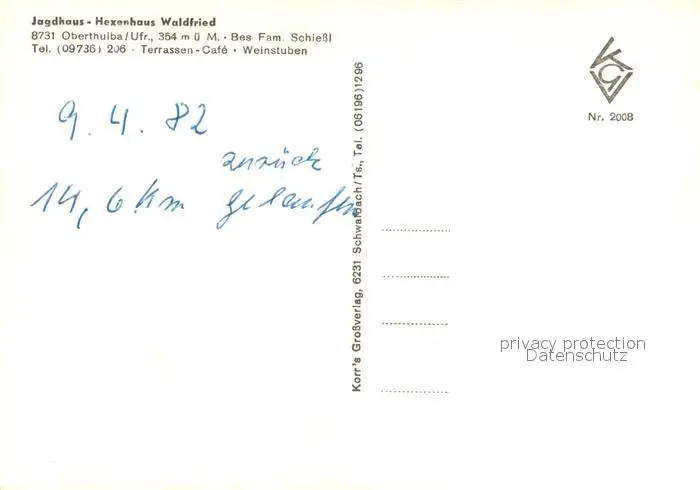 Jagdhaus - Hexenhaus Waldfried
8731 Oberthulba/Ufr., 354 m ü M. · Bes Fam. Schießl
Tel. (09736) 206 · Terrassen-Café · Weinstuben
9. 4. 82
zurück
14,6 Km gelaufen
Korr's Großverlag, 6231 Schwalbach/Ts., Tel. (06196)1296
Nr. 2008
privacy protection
Datenschutz